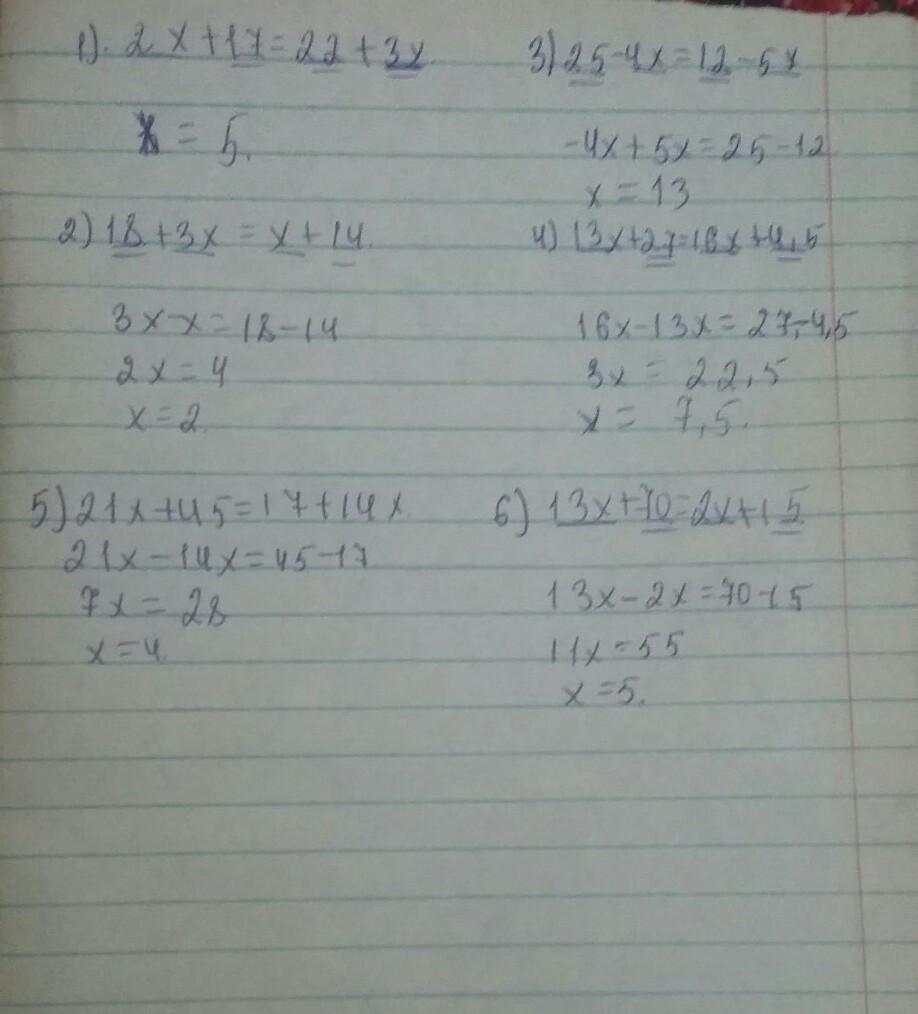 1). 2x+17=22+3x
x = 5.
2) 18+3x = x+14.
3x-x=18-14
2x=4
x=2
3) 25-4x=12-5x
-4x+5x=25-12
x=13
4) 13x+27=16x+4,5
16x-13x=27-4,5
3x = 22,5
x = 7,5.
5) 21x+45=17+14x.
21x-14x=45-17
7x=28
x=4
6) 13x+70=2x+15
13x-2x=70-15
11x=55
x=5.